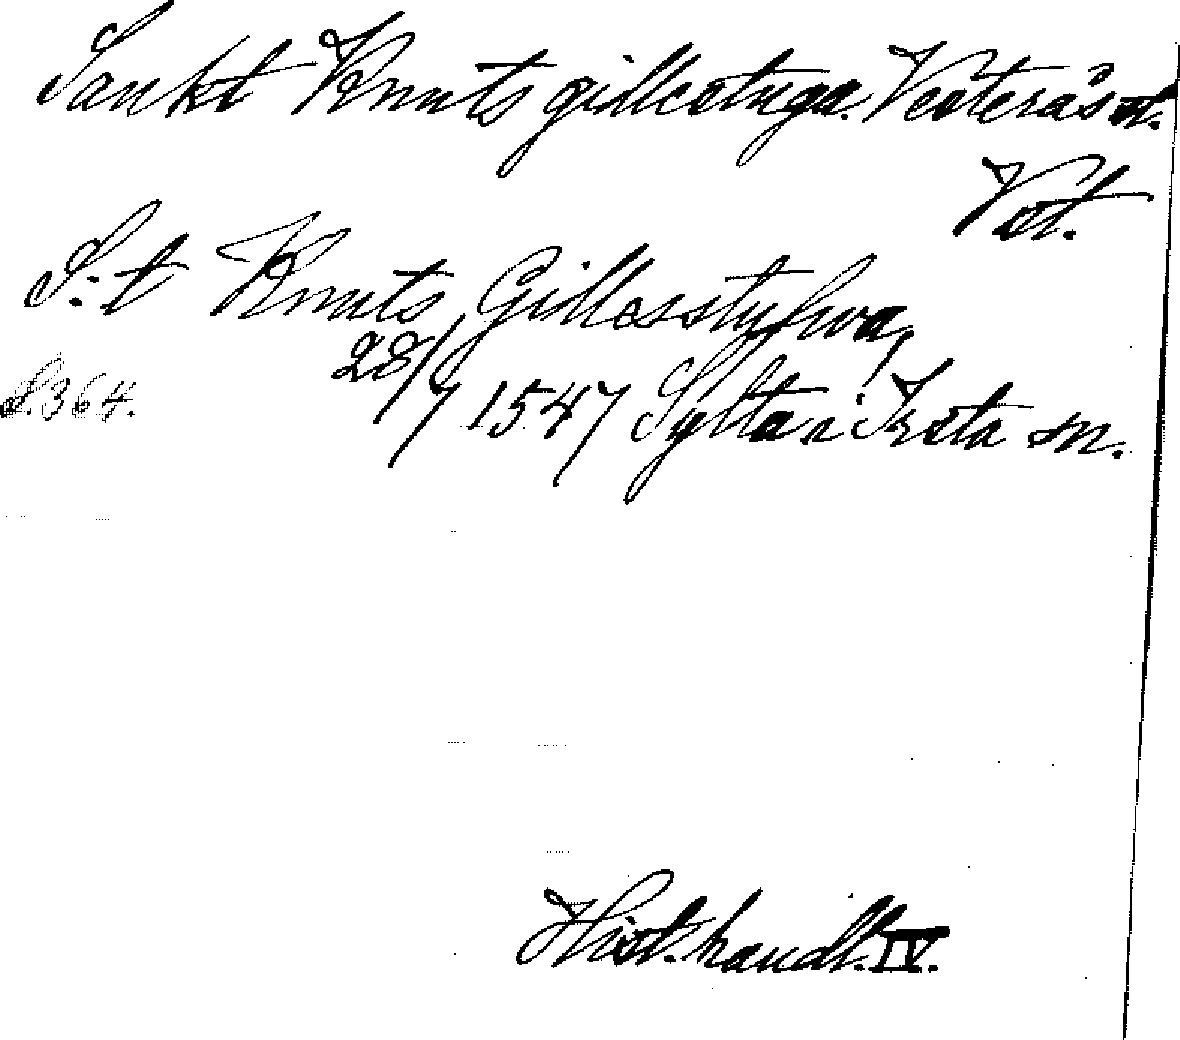 Sankt Knuts gillestuga. Västerås st.
Vst.
S:t Knuts Gillesstufwa,
S. 364. 28/7 1547 Sylta i Irsta sn.
Hist. handl. IV.